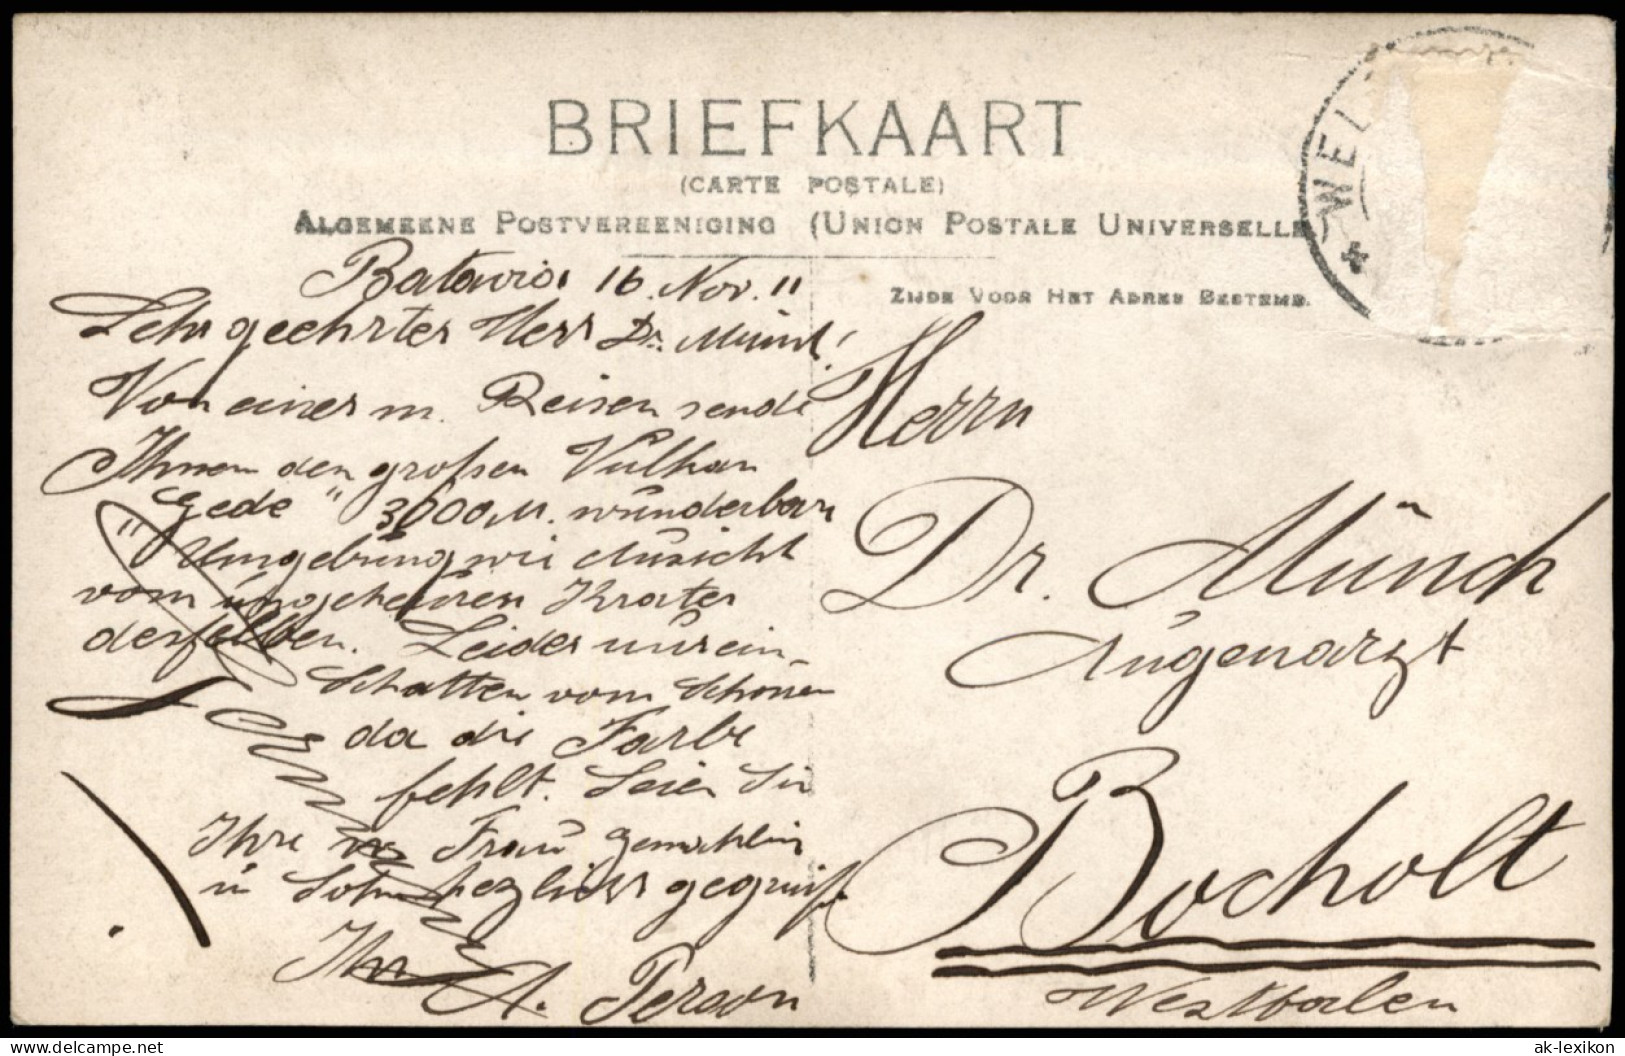 BRIEFKAART
(CARTE POSTALE)
ALGEMEENE POSTVEREENIGING (UNION POSTALE UNIVERSELLE
ZIJDE VOOR HET ADRES BESTEMD.
WEL
Batavia 16. Nov. 11
Sehr geehrter Herr Dr. Münch!
Von einer m. Reisen sende
Ihnen den großen Vulkan
"Gede" 3000 M. wunderbare
Umgebung wie Aussicht
vom ungeheuren Krater
desselben. Leider nur ein
Schatten vom Schönen
da die Farbe
fehlt. Seien Sie
Ihre Frau Gemahlin
u Sohn herzlichst gegrüßt
Ihr
A. Person
Herrn
Dr. Münch
Augenarzt
Bocholt
Westfalen
ak-lexikon